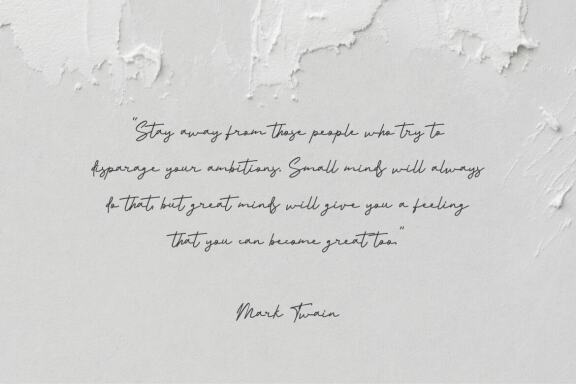 "Stay away from those people who try to
disparage your ambitions. Small minds will always
do that, but great minds will give you a feeling
that you can become great too."
Mark Twain